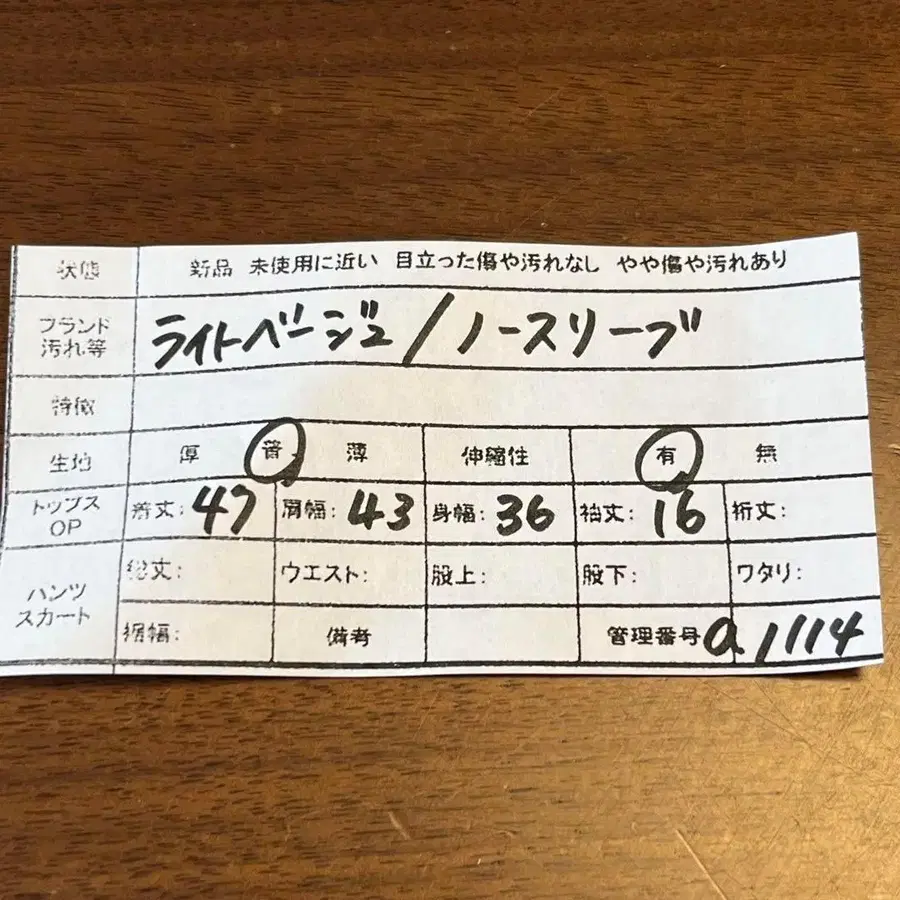 状態 新品 未使用に近い 目立った傷や汚れなし やや傷や汚れあり
ブランド
汚れ等
ライトベージュ/ノースリーブ
特徴
生地 厚 普 薄 伸縮性 有 無
トップス
OP
着丈:47 肩幅:43 身幅:36 袖丈:16 裄丈:
パンツ
スカート
総丈: ウエスト: 股上: 股下: ワタリ:
裾幅: 備考 管理番号 a.1114